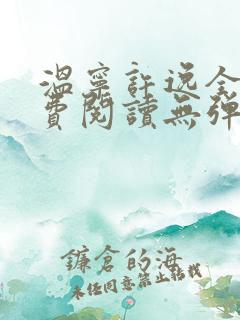 温寧許逸全
費閱讀無彈
鐮倉的海
未經同意禁止轉載